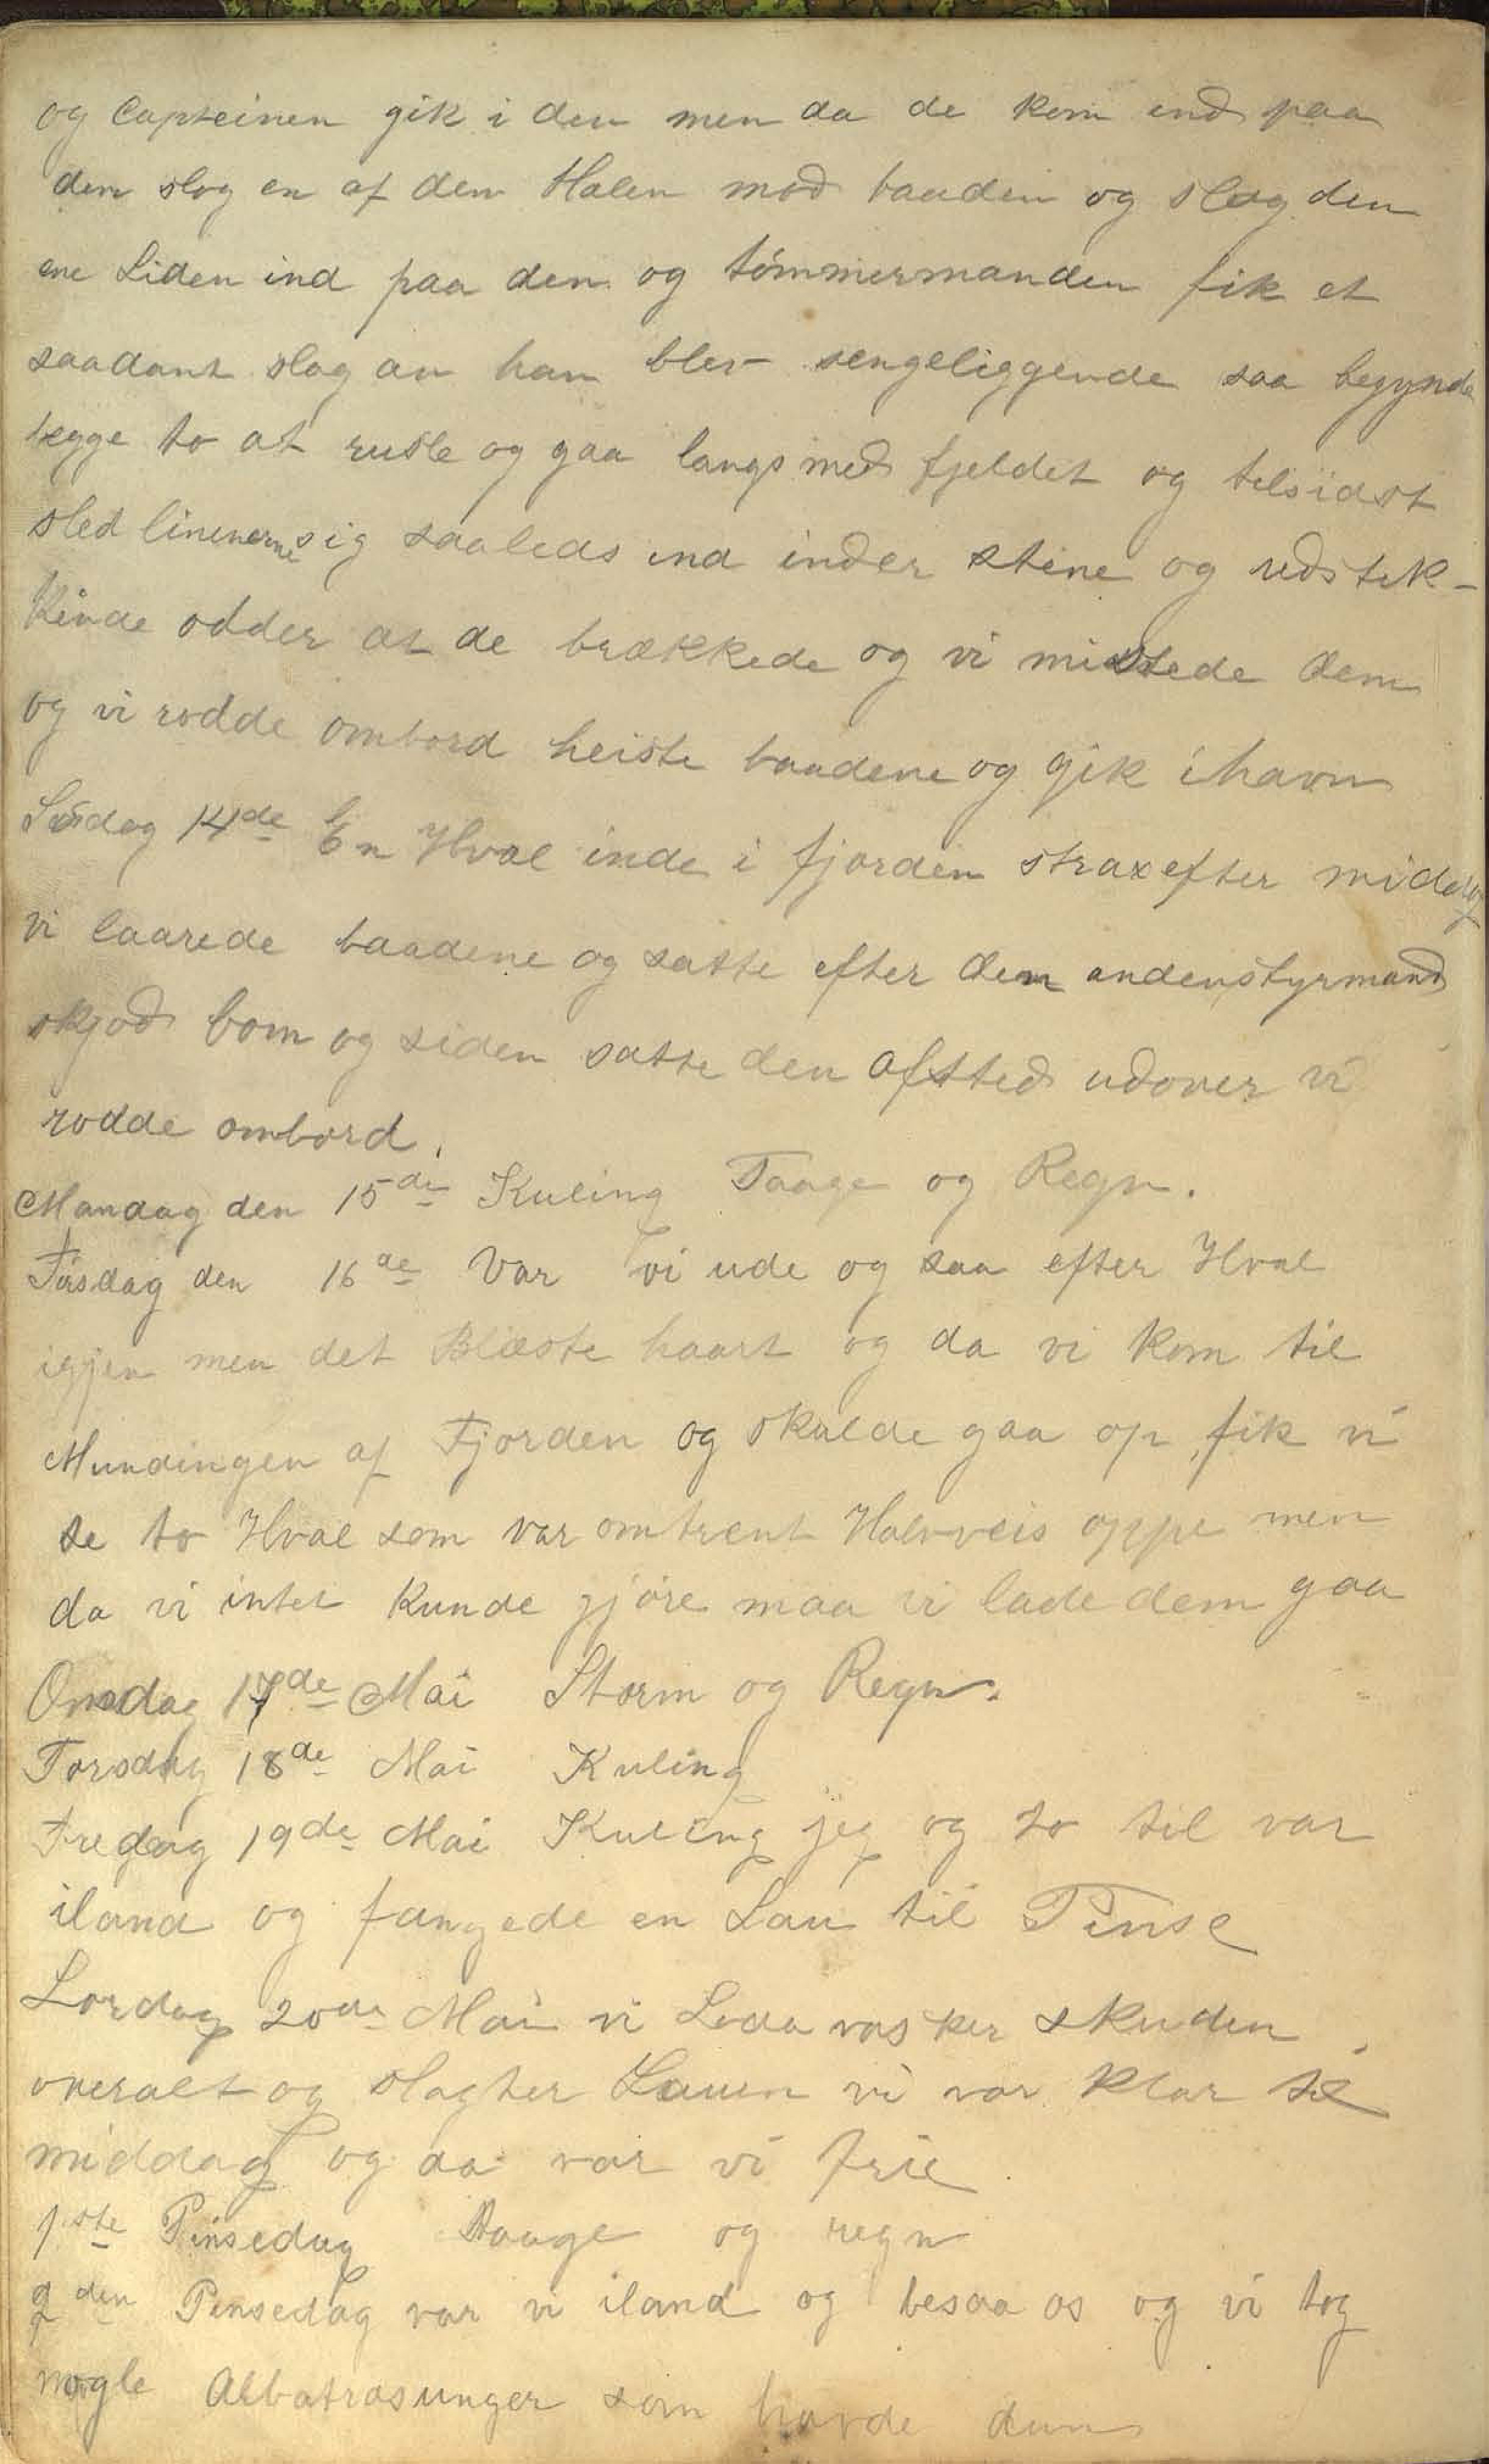 og Capteinen gik i den men da de kom ind paa
dem slog en af dem Halen mod baaden og slog den
ene Siden ind paa den og tömmermanden fik et
saadant slag an han blev sengeliggende saa begynde
begge to at rusle og gaa langs med fjeldet og tilsidst
sled linenerne sig saaleds ind inder stene og udstik-
kinde odder at de brækkede og vi mistede dem
og vi rodde ombord heiste baadene og gik ihavn
Södag 14de En Hval inde i fjorden strax efter middag
vi laarede baadene og satte efter den andenstyrmand
skjöd bom og siden satte den afsted udover vi
rodde ombord.
Mandag den 15de Kuling Taage og Regn.
Tirsdag den 16de Var vi ude og saa efter Hval
igjen men det Blæste haart og da vi kom til
Mundingen af Fjorden og skulde gaa op fik vi
se to Hval som var omtrent Halvveis oppe men
da vi intet kunde gjöre maa vi lade dem gaa
Onsdag 17de Mai Storm og Regn.
Torsdag 18de Mai Kuling
Fredag 19de Mai Kuling jeg og to til var
iland og fangede en Sau til Pinse
Lordag 20de Mai vi Soda vasker skuden
overalt og slagter Sauen vi var klar til
middag og da var vi frie
1ste Pinsedag Taage og regn
2den Pinsedag var vi iland og besaa os og vi tog
nogle Albatrasunger som havde dun